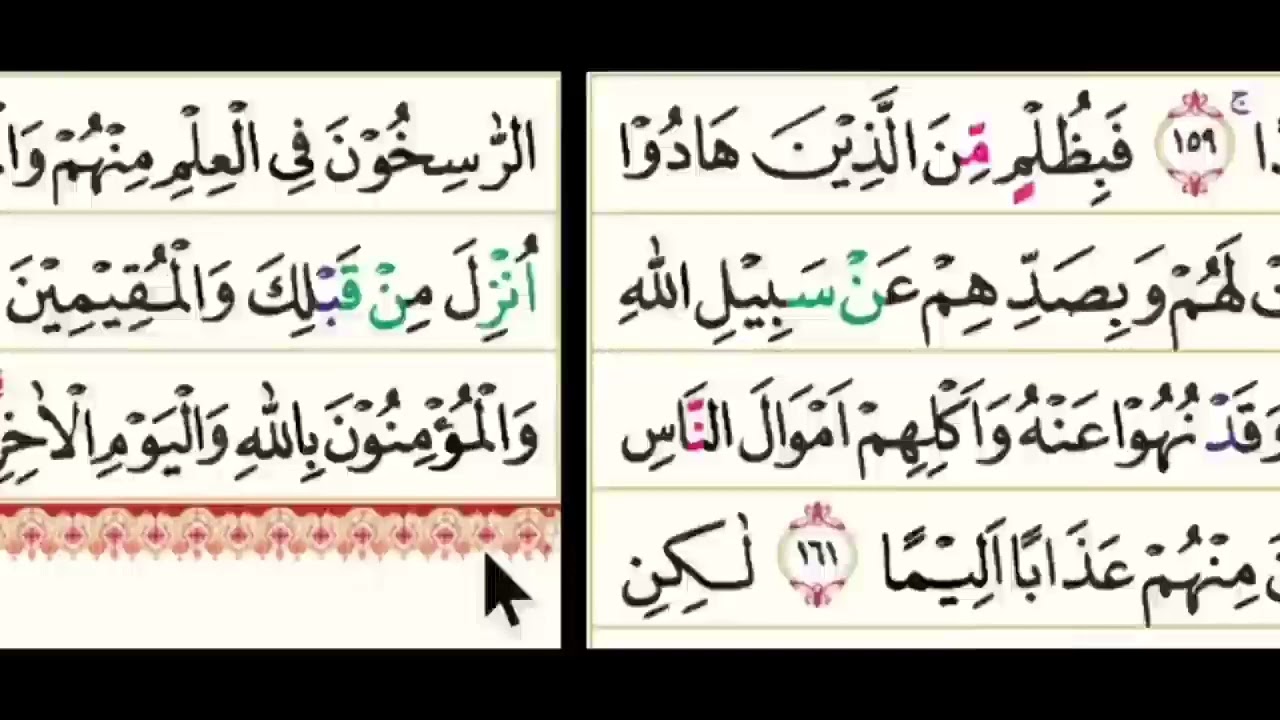 ج ١٥٩ فَبِظُلْمٍ مِّنَ الَّذِيْنَ هَادُوْا
لَهُمْ وَبِصَدِّهِمْ عَنْ سَبِيْلِ اللّٰهِ
وَقَدْ نُهُوْا عَنْهُ وَاَكْلِهِمْ اَمْوَالَ النَّاسِ
مِنْهُمْ عَذَابًا اَلِيْمًا ١٦١ لٰكِنِ
الرّٰسِخُوْنَ فِى الْعِلْمِ مِنْهُمْ
اُنْزِلَ مِنْ قَبْلِكَ وَالْمُقِيْمِيْنَ
وَالْمُؤْمِنُوْنَ بِاللّٰهِ وَالْيَوْمِ الْاٰخِرِ